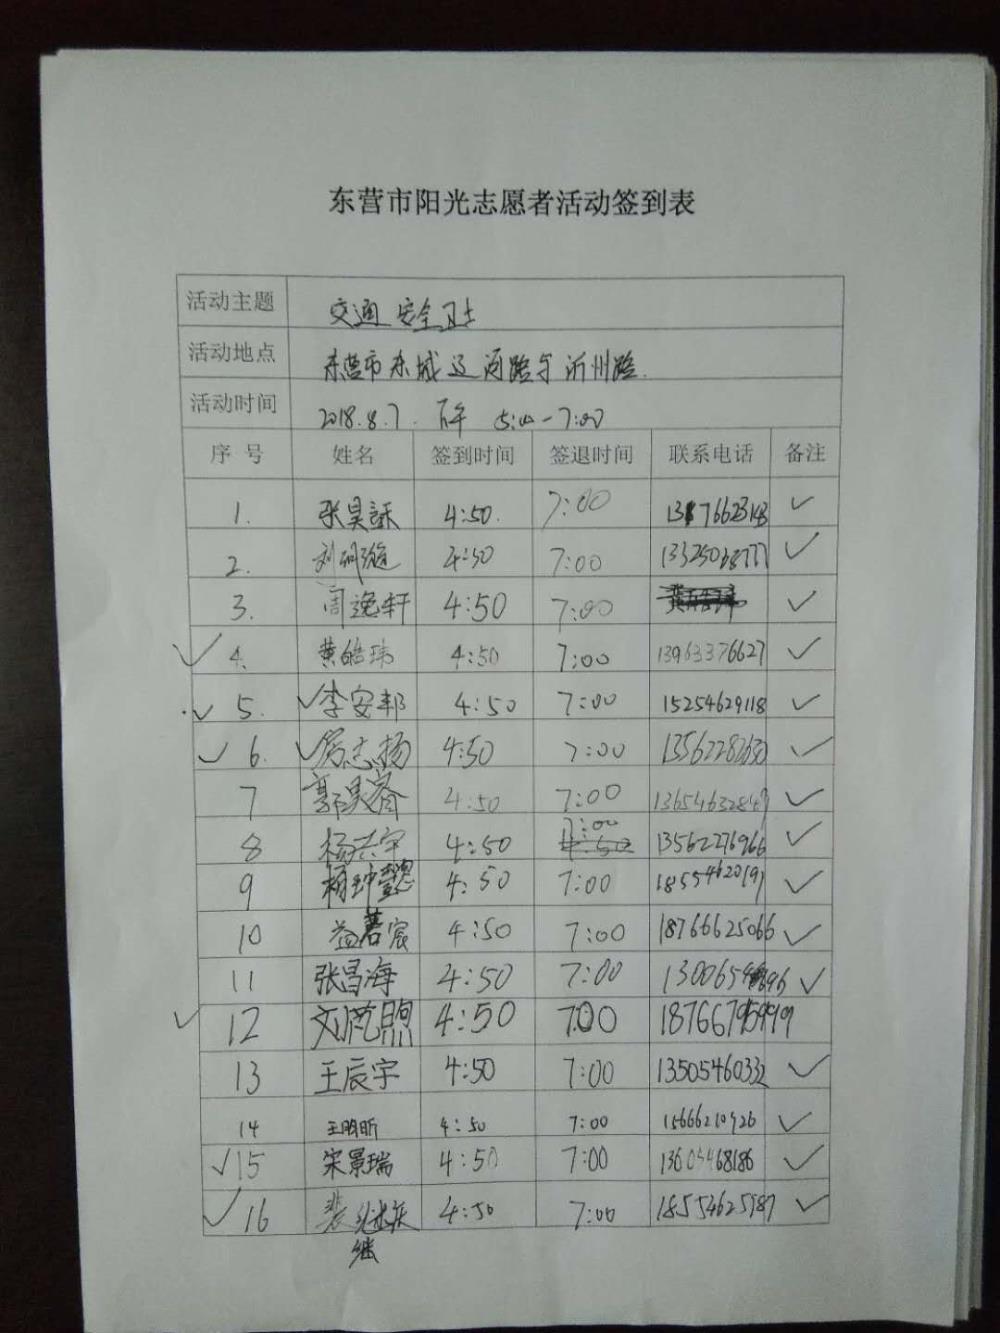 东营市阳光志愿者活动签到表
活动主题 交通安全卫士
活动地点 东营市东城辽河路与沂州路.
活动时间 2018.8.7. 下午 5:00-7:00
序号 姓名 签到时间 签退时间 联系电话 备注
1. 张昊 4:50. 7:00 ✓
2. 刘 4:50 7:00 ✓
3. 周逸轩 4:50 7:00 ✓
✓ 4. 黄皓玮 4:50 7:00 13963376627 ✓
✓ 5. ✓李安邦 4:50 7:00 15254629118 ✓
✓ 6. ✓志扬 4:50 7:00 ✓
7 郭昊睿 4:50 7:00 ✓
8 杨宇 4:50 7:00 13562276966 ✓
9 懿 4:50 7:00 18554620191 ✓
10 益宸 4:50 7:00 18766625066 ✓
11 张昌海 4:50 7:00 ✓
✓ 12 刘范煦 4:50 7:00
13 王辰宇 4:50 7:00 13505460332 ✓
14 王明昕 4:50 7:00 15666210926 ✓
✓15 宋景瑞 4:50 7:00 13605468186 ✓
✓16 裴 4:50 7:00 18554625987 ✓
继